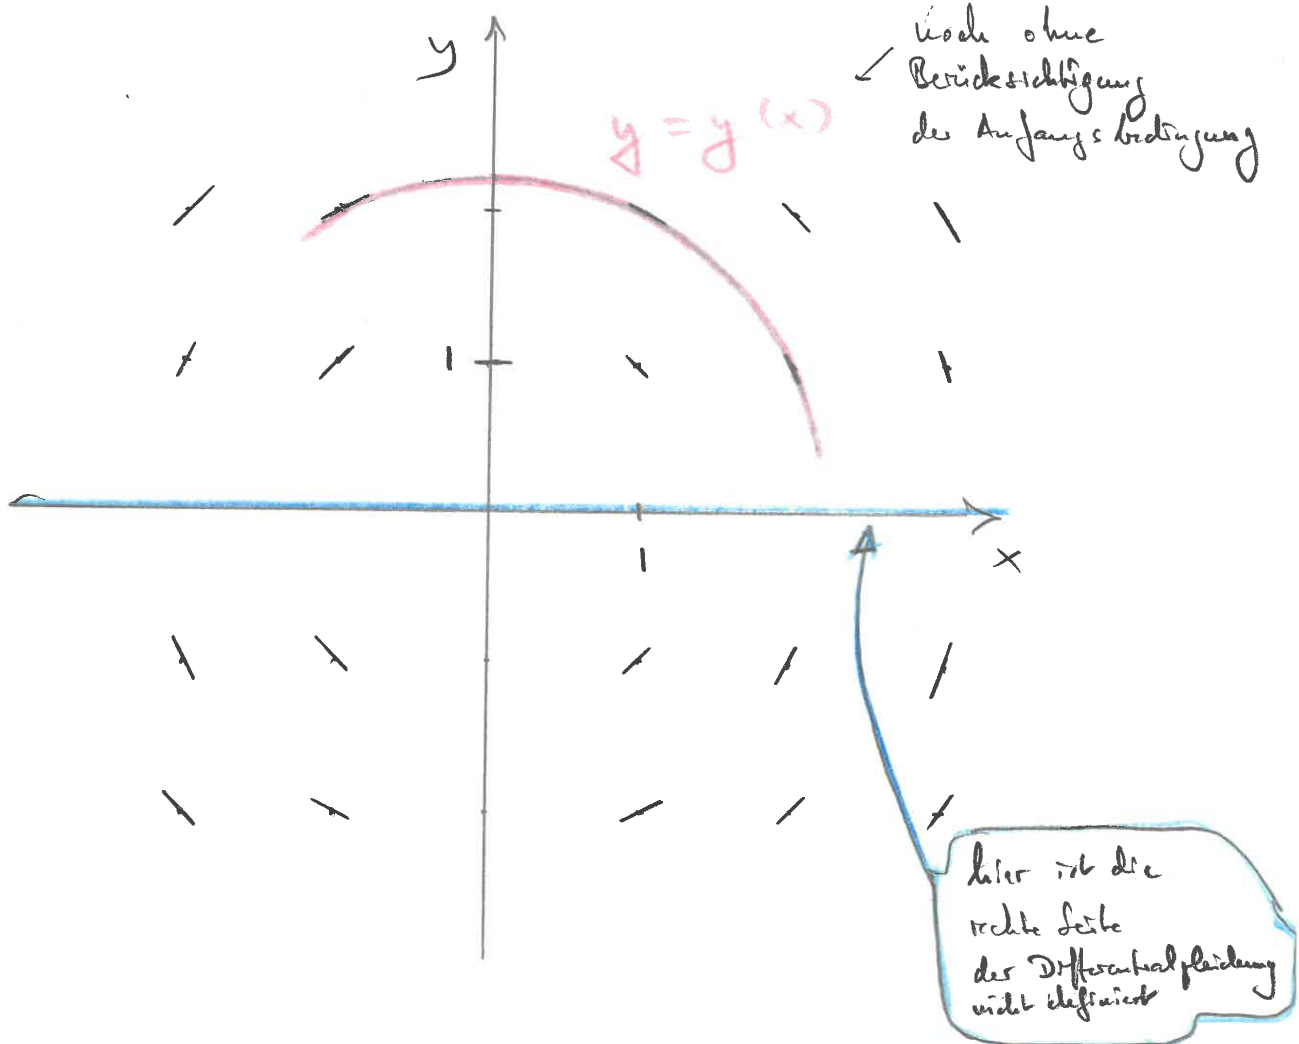 noch ohne
Berücksichtigung
der Anfangsbedingung
y
y = y(x)
1
1
x
hier ist die
rechte Seite
der Differentialgleichung
nicht definiert